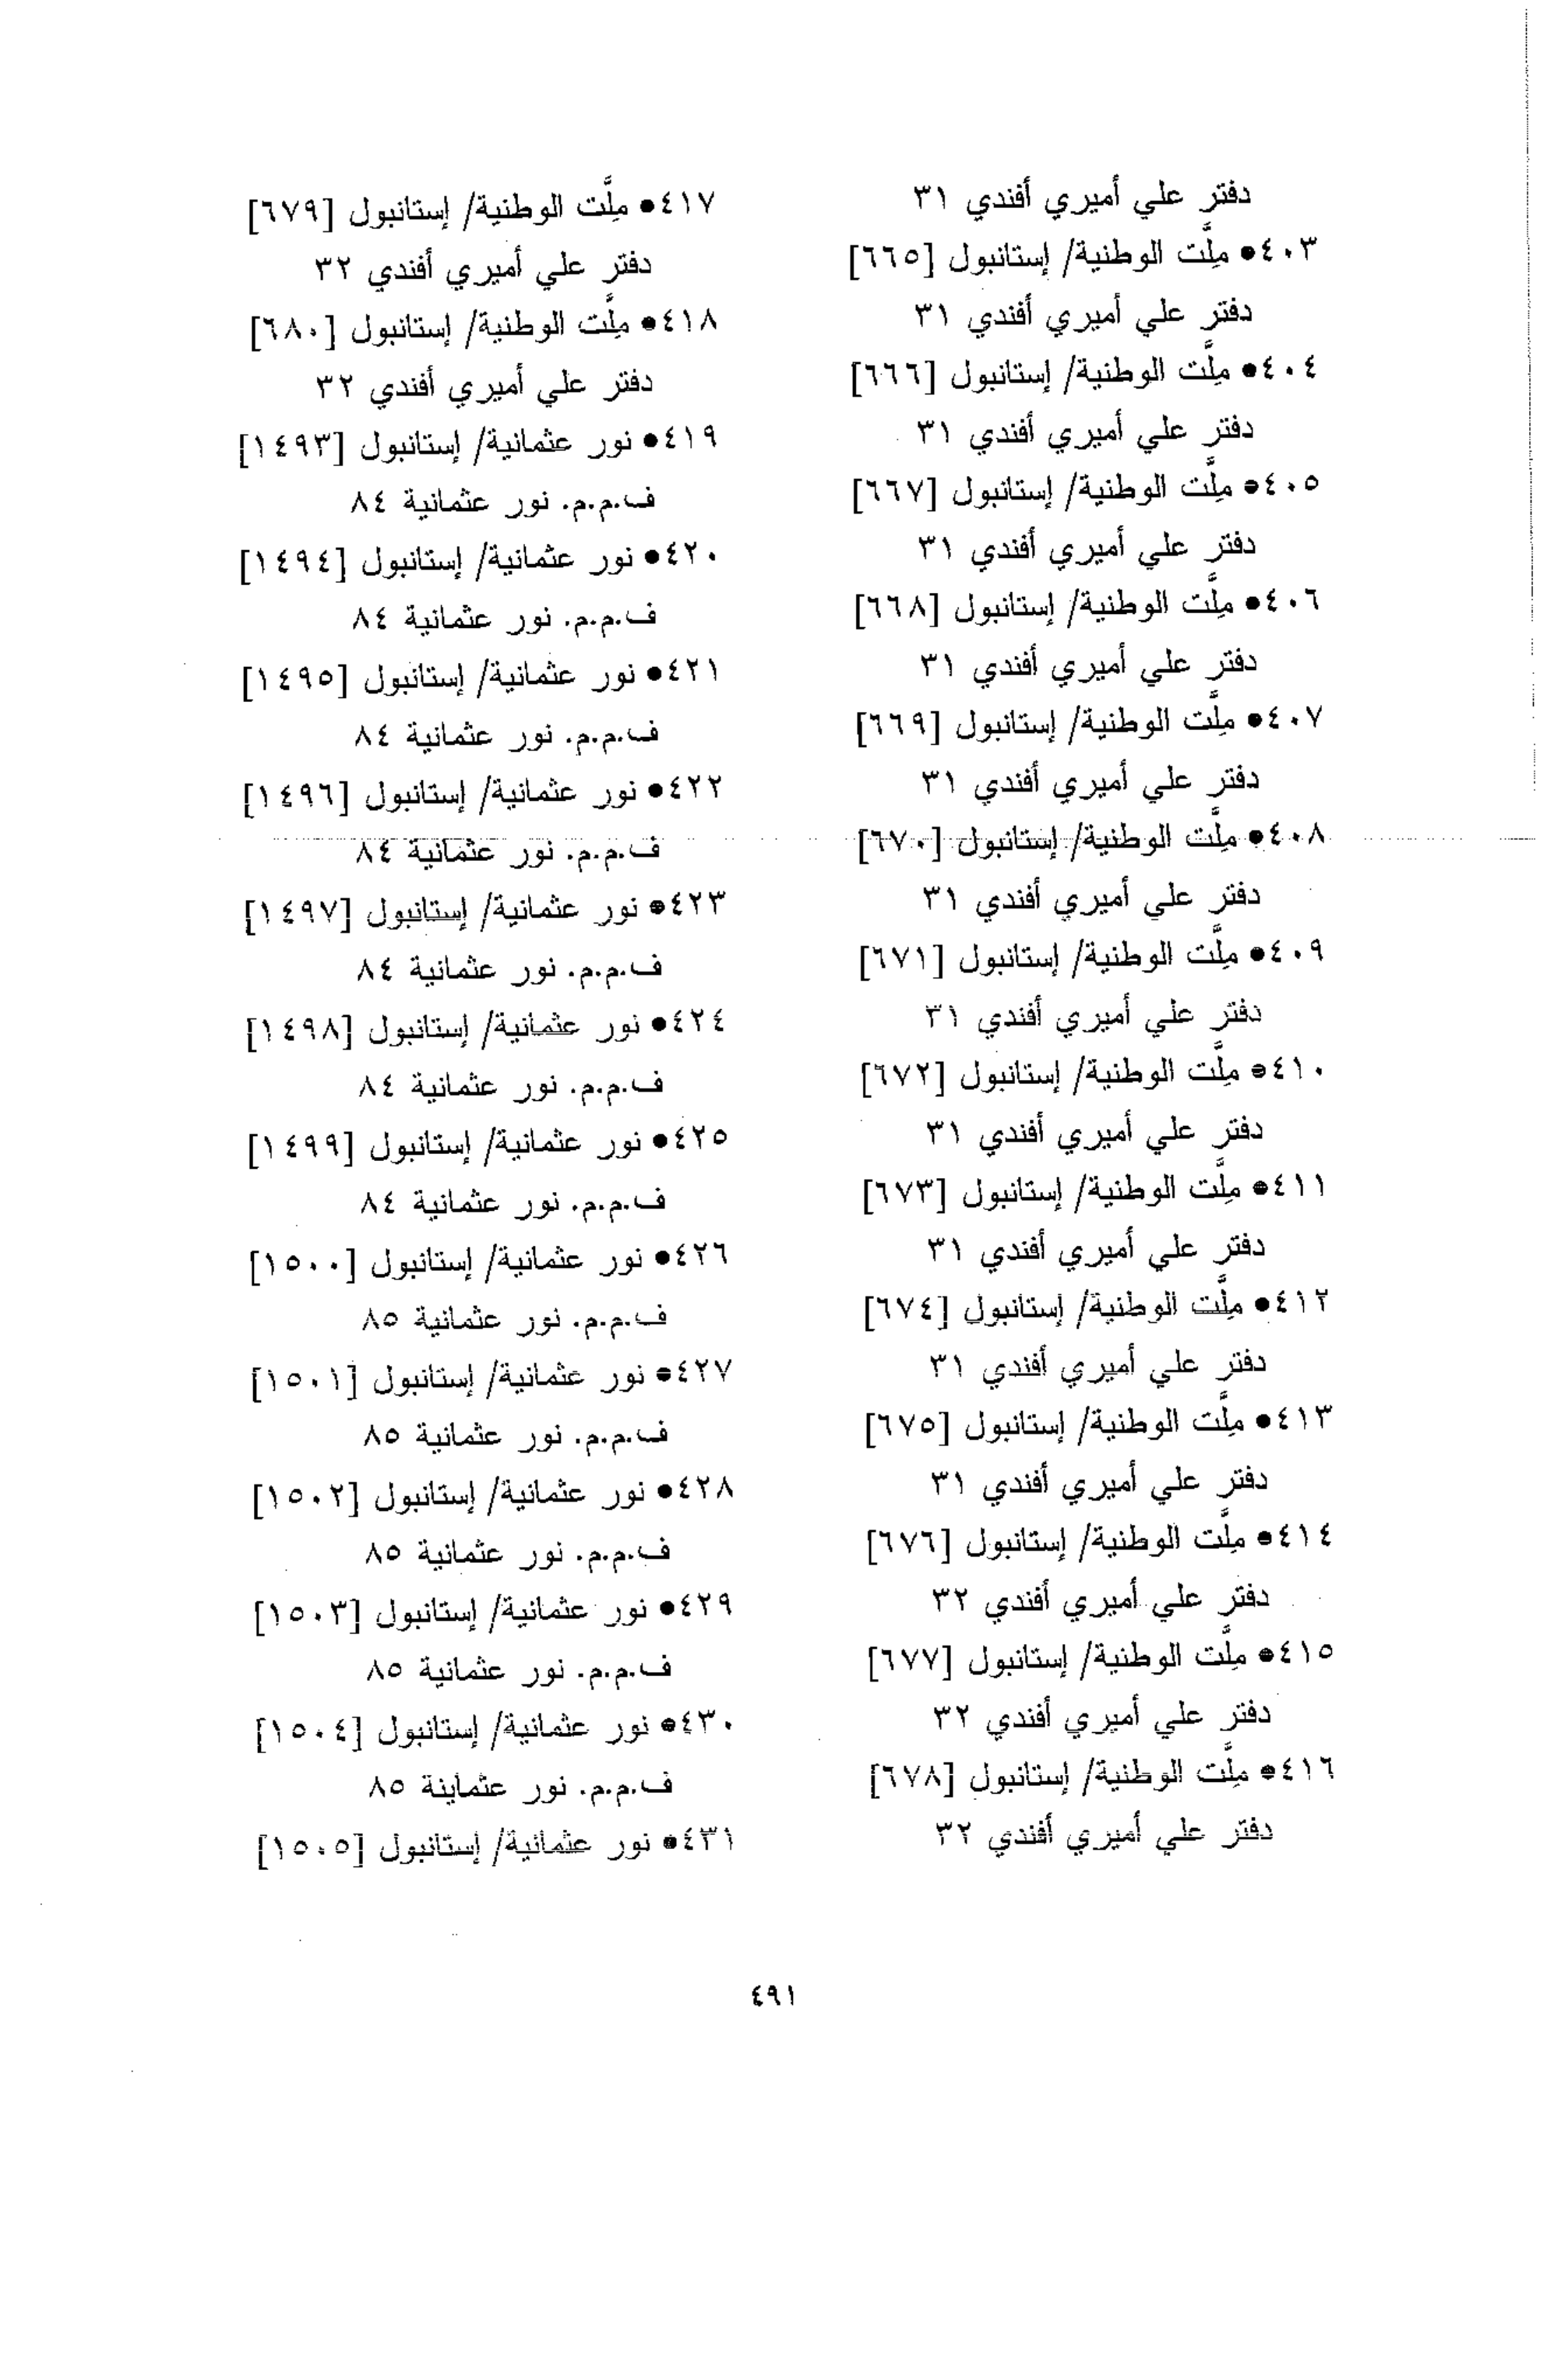 دفتر علي أميري أفندي ٣١
٤٠٣● ملَّت الوطنية/ إستانبول [٦٦٥]
دفتر علي أميري أفندي ٣١
٤٠٤● ملَّت الوطنية/ إستانبول [٦٦٦]
دفتر علي أميري أفندي ٣١
٤٠٥● ملَّت الوطنية/ إستانبول [٦٦٧]
دفتر علي أميري أفندي ٣١
٤٠٦● ملَّت الوطنية/ إستانبول [٦٦٨]
دفتر علي أميري أفندي ٣١
٤٠٧● ملَّت الوطنية/ إستانبول [٦٦٩]
دفتر علي أميري أفندي ٣١
٤٠٨● ملَّت الوطنية/ إستانبول [٦٧٠]
دفتر علي أميري أفندي ٣١
٤٠٩● ملَّت الوطنية/ إستانبول [٦٧١]
دفتر علي أميري أفندي ٣١
٤١٠● ملَّت الوطنية/ إستانبول [٦٧٢]
دفتر علي أميري أفندي ٣١
٤١١● ملَّت الوطنية/ إستانبول [٦٧٣]
دفتر علي أميري أفندي ٣١
٤١٢● ملَّت الوطنية/ إستانبول [٦٧٤]
دفتر علي أميري أفندي ٣١
٤١٣● ملَّت الوطنية/ إستانبول [٦٧٥]
دفتر علي أميري أفندي ٣١
٤١٤● ملَّت الوطنية/ إستانبول [٦٧٦]
دفتر علي أميري أفندي ٣٢
٤١٥● ملَّت الوطنية/ إستانبول [٦٧٧]
دفتر علي أميري أفندي ٣٢
٤١٦● ملَّت الوطنية/ إستانبول [٦٧٨]
دفتر علي أميري أفندي ٣٢
٤١٧● ملَّت الوطنية/ إستانبول [٦٧٩]
دفتر علي أميري أفندي ٣٢
٤١٨● ملَّت الوطنية/ إستانبول [٦٨٠]
دفتر علي أميري أفندي ٣٢
٤١٩● نور عثمانية/ إستانبول [١٤٩٣]
ف.م.م. نور عثمانية ٨٤
٤٢٠● نور عثمانية/ إستانبول [١٤٩٤]
ف.م.م. نور عثمانية ٨٤
٤٢١● نور عثمانية/ إستانبول [١٤٩٥]
ف.م.م. نور عثمانية ٨٤
٤٢٢● نور عثمانية/ إستانبول [١٤٩٦]
ف.م.م. نور عثمانية ٨٤
٤٢٣● نور عثمانية/ إستانبول [١٤٩٧]
ف.م.م. نور عثمانية ٨٤
٤٢٤● نور عثمانية/ إستانبول [١٤٩٨]
ف.م.م. نور عثمانية ٨٤
٤٢٥● نور عثمانية/ إستانبول [١٤٩٩]
ف.م.م. نور عثمانية ٨٤
٤٢٦● نور عثمانية/ إستانبول [١٥٠٠]
ف.م.م. نور عثمانية ٨٥
٤٢٧● نور عثمانية/ إستانبول [١٥٠١]
ف.م.م. نور عثمانية ٨٥
٤٢٨● نور عثمانية/ إستانبول [١٥٠٢]
ف.م.م. نور عثمانية ٨٥
٤٢٩● نور عثمانية/ إستانبول [١٥٠٣]
ف.م.م. نور عثمانية ٨٥
٤٣٠● نور عثمانية/ إستانبول [١٥٠٤]
ف.م.م. نور عثماينة ٨٥
٤٣١● نور عثمانية/ إستانبول [١٥٠٥]
٤٩١